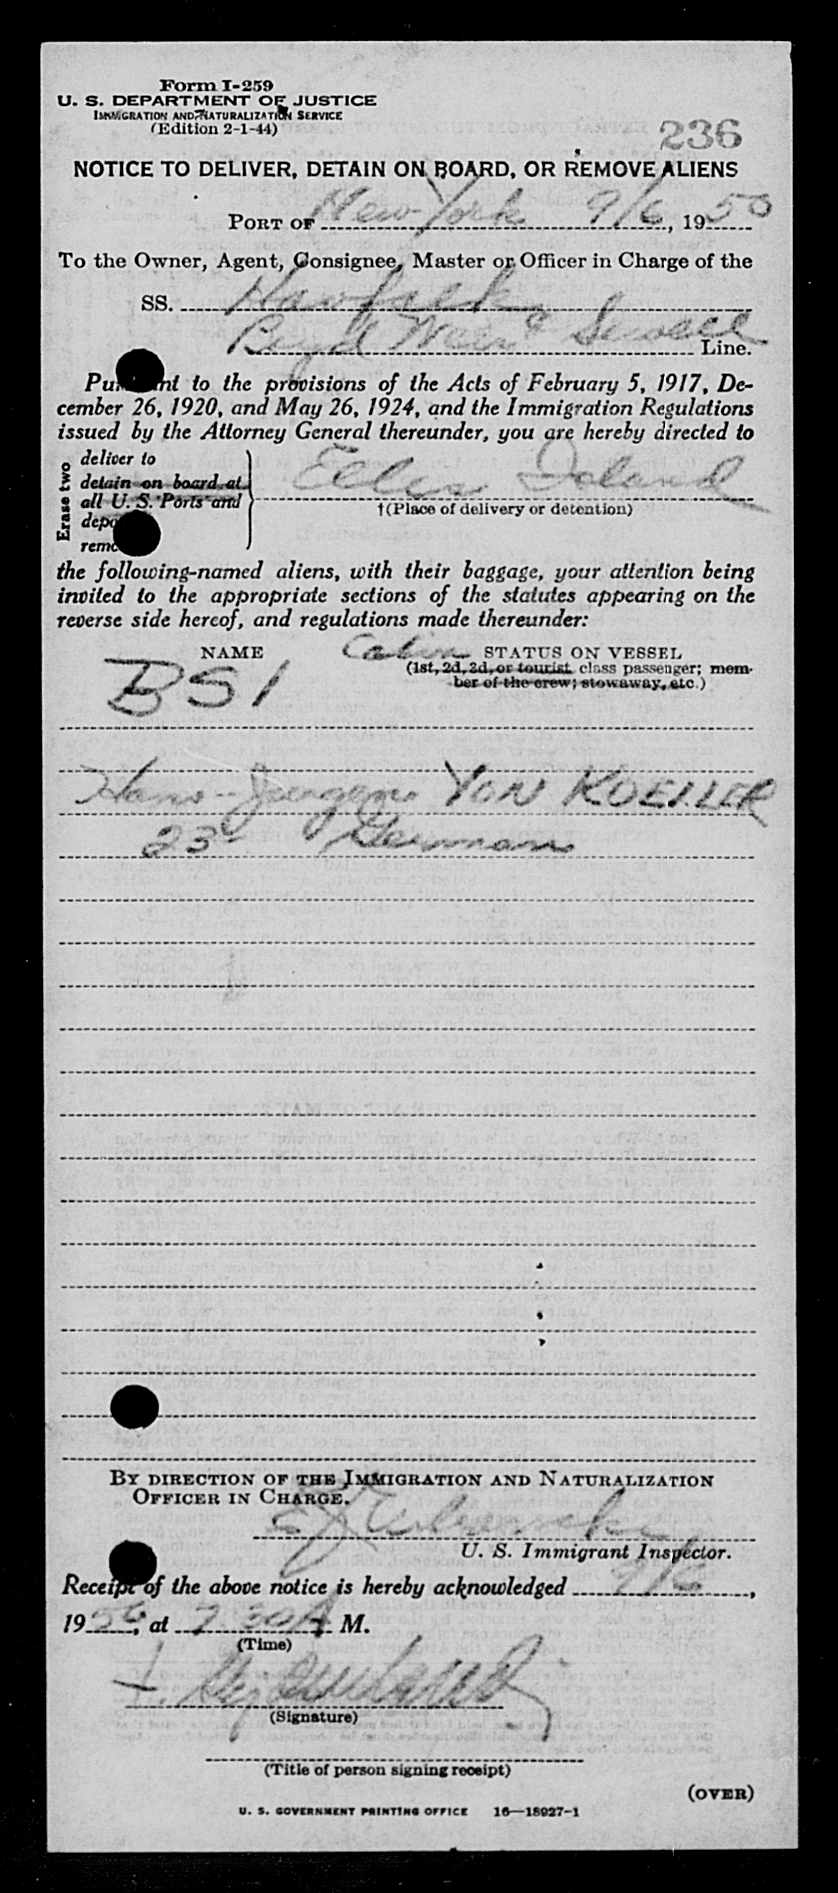 Form I-259
U. S. DEPARTMENT OF JUSTICE
IMMIGRATION AND NATURALIZATION SERVICE
(Edition 2-1-44)
236
NOTICE TO DELIVER, DETAIN ON BOARD, OR REMOVE ALIENS
PORT OF New York 9/6, 1950
To the Owner, Agent, Consignee, Master or Officer in Charge of the
SS.
Boyd Weir & Sewell Line.
Pursuant to the provisions of the Acts of February 5, 1917, De-
cember 26, 1920, and May 26, 1924, and the Immigration Regulations
issued by the Attorney General thereunder, you are hereby directed to
Erase two
deliver to
detain on board at
all U. S. Ports and
remove
Ellis Island
†(Place of delivery or detention)
the following-named aliens, with their baggage, your attention being
invited to the appropriate sections of the statutes appearing on the
reverse side hereof, and regulations made thereunder:
NAME Cabin STATUS ON VESSEL
(1st, 2d, 3d, or tourist class passenger; mem-
ber of the crew; stowaway, etc.)
BSI
Hans-Juergen VON KOELLER
23 German
BY DIRECTION OF THE IMMIGRATION AND NATURALIZATION
OFFICER IN CHARGE.
U. S. Immigrant Inspector.
Receipt of the above notice is hereby acknowledged 9/6,
1950, at 7 30 A M.
(Time)
(Signature)
(Title of person signing receipt)
(OVER)
U. S. GOVERNMENT PRINTING OFFICE 16—18927-1